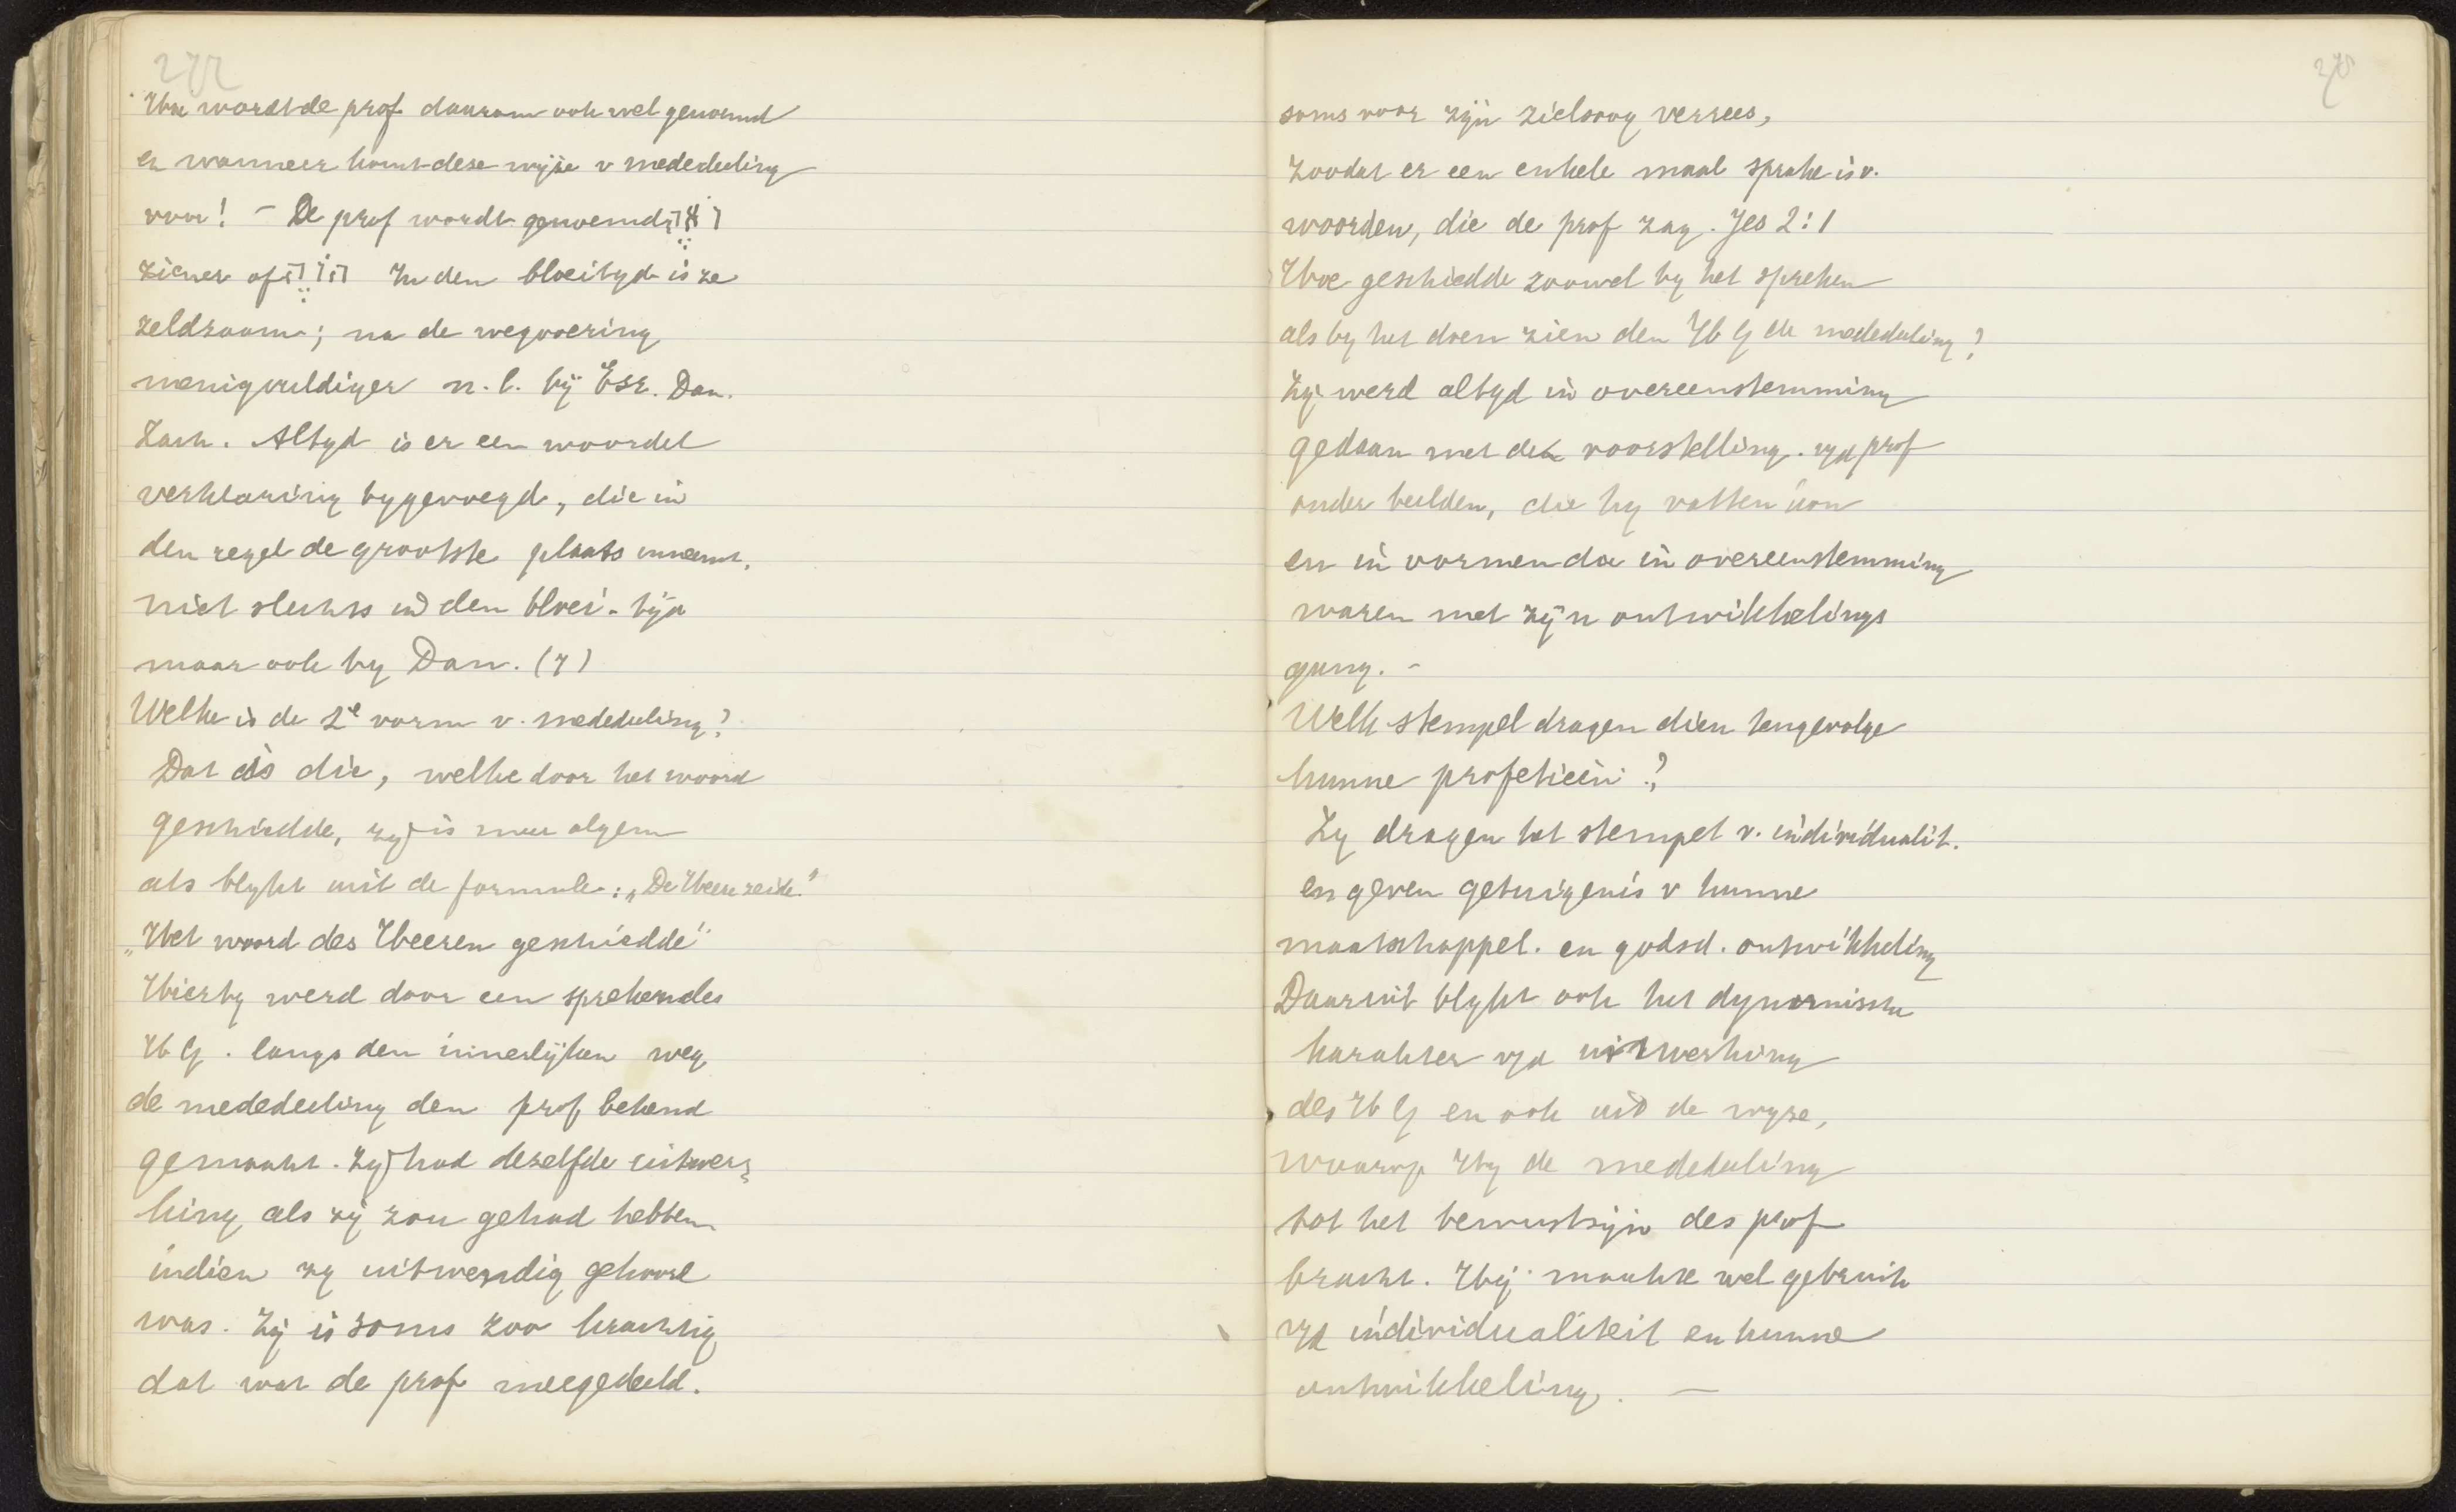 272
Hoe wordt de prof daarom ook wel genoemd
en wanneer komt deze wijze v mededeeling
voor! – De prof wordt genoemd
ziener of In den bloeityd is ze
zeldzaam; na de wegvoering
menigvuldiger n.l. bij Eze. Dan.
Zach. Altyd is er een woordel
verklaring bygevoegd, die in
den regel de grootste plaats inneemt,
niet slechts in den bloei-tijd
maar ook by Dan. (7)
Welke is de 2e vorm v. mededeeling?
Dat is die, welke door het woord
geschiedde, zy is meer algem
als blykt uit de formule: „De Heere zeide"
„Het woord des Heeren geschiedde"
Hierby werd door een sprekendes
H G. langs den innerlijken weg
de mededeeling den prof bekend
gemaakt. Zy had dezelfde uitwer-
king als zij zou gehad hebben
indien zy uitwendig gehoord
was. Zij is soms zoo krachtig
dat wat de prof meegedeeld.
soms voor zijn zielsoog verrees,
zoodat er een enkele maal sprake is v.
woorden, die de prof zag. Jes 2:1
Hoe geschiedde zoowel by het spreken
als by het doen zien den H G de mededeeling?
Zij werd altyd in overeenstemming
gedaan met de voorstelling. v/d prof
onder beelden, die hy vatten kon
en in vormen die in overeenstemming
waren met zijn ontwikkelings
gang. –
Welk stempel dragen dien tengevolge
hunne profetieën?
Zy dragen het stempel v. individualit.
en geven getuigenis v hunne
maatschappel. en godsd. ontwikkeling
Daaruit blykt ook het dynamische
karakter v/d uitwerking
des H G en ook uit de wyze,
waarop Hy de mededeeling
tot het bewustzijn des prof
bracht. Hij maakte wel gebruik
v/d individualiteit en hunne
ontwikkeling. —